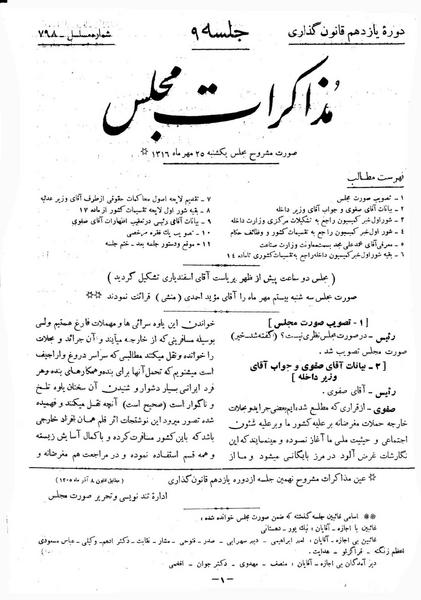 دورهٔ یازدهم قانون گذاری
جلسه ۹
شماره مسلسل - ۷۹۸
مذاکرات مجلس
صورت مشروح مجلس یکشنبه ۲۵ مهر ماه ۱۳۱۶
فهرست مطالب
۱ - تصویب صورت مجلس
۲ - بیانات آقای صفوی و جواب آقای وزیر داخله
۳ - شور اول خبر کمیسیون راجع به تشکیلات مرکزی وزارت داخله
۴ - شور اول خبر کمیسیون راجع به تقسیمات کشور و وظائف حکام
۵ - معرفی آقای محمد علی مجد بسمت معاونت وزارت صناعت
۶ - بقیه شور اول خبر کمیسیون داخله راجع به تقسیمات کشوری تا ماده ۱۴
۷ - تقدیم لایحه اصول محاکمات حقوقی از طرف آقای وزیر عدلیه
۸ - بقیه شور اول لایحه تقسیمات کشور از ماده ۱۷
۹ - بیانات آقای رئیس در تعقیب اظهارات آقای صفوی
۱۰ - تصویب یک فقره مرخصی
۱۱ - موقع و دستور جلسه بعد - ختم جلسه
(مجلس دو ساعت پیش از ظهر بریاست آقای اسفندیاری تشکیل گردید)
صورت مجلس سه شنبه بیستم مهر ماه را آقای مؤید احمدی (منشی) قرائت نمودند
[ ۱ - تصویب صورت مجلس ]
رئیس - در صورت مجلس نظری نیست؟ (گفته شد - خیر)
صورت مجلس تصویب شد.
[ ۲ - بیانات آقای صفوی و جواب آقای
وزیر داخله ]
رئیس - آقای صفوی.
صفوی - از قراری که مطلع شده‌ایم بعضی جراید و مجلات
خارجه حملات مغرضانه بر علیه کشور ما و بر علیه شئون
اجتماعی و حیثیت ملی ما آغاز نموده و مینمایند که این
نگارشات غرض آلود در مرز بایگانی میشود و ما از
خواندن این یاوه سرائی ها و مهملات فارغ هستیم ولی
بوسیله مسافرینی که از خارجه میآیند و آن جرائد و مجلات
را خوانده و نقل میکنند مطالبی که سراسر دروغ و اراجیف
است میشنویم که تحمل آنها برای بنده و همکارهای بنده و هر
فرد ایرانی بسیار دشوار و شنیدن آن سخنان یاوه تلخ
و ناگوار است (صحیح است) آنچه نقل میکنند و فهمیده
شده تصور میرود این نوشتجات اثر قلم همان افراد خارجی
باشد که باین کشور مسافرت کرده و با کمال آسایش زیسته
و همه قسم استفاده نموده و در مراجعت هم مغرضانه و
عین مذاکرات مشروح نهمین جلسه از دوره یازدهم قانون گذاری (مطابق قانون ۸ آذر ماه ۱۳۰۵)
اداره تند نویسی و تحریر صورت مجلس
اسامی غائبین جلسه گذشته که ضمن صورت مجلس خوانده شده:
غائبین با اجازه - آقایان: نیک پور - دهستانی
غائبین بی اجازه - آقایان: امیر ابراهیمی - دبیر سهرابی - صدر - فتوحی - مشار - نقابت - دکتر ادهم - وکیلی - عباس مسعودی
اعظم زنگنه - قراگزلو - هدایت.
دیر آمدگان بی اجازه - آقایان: منصف - مهدوی - دکتر جوان - افخمی
-۱-